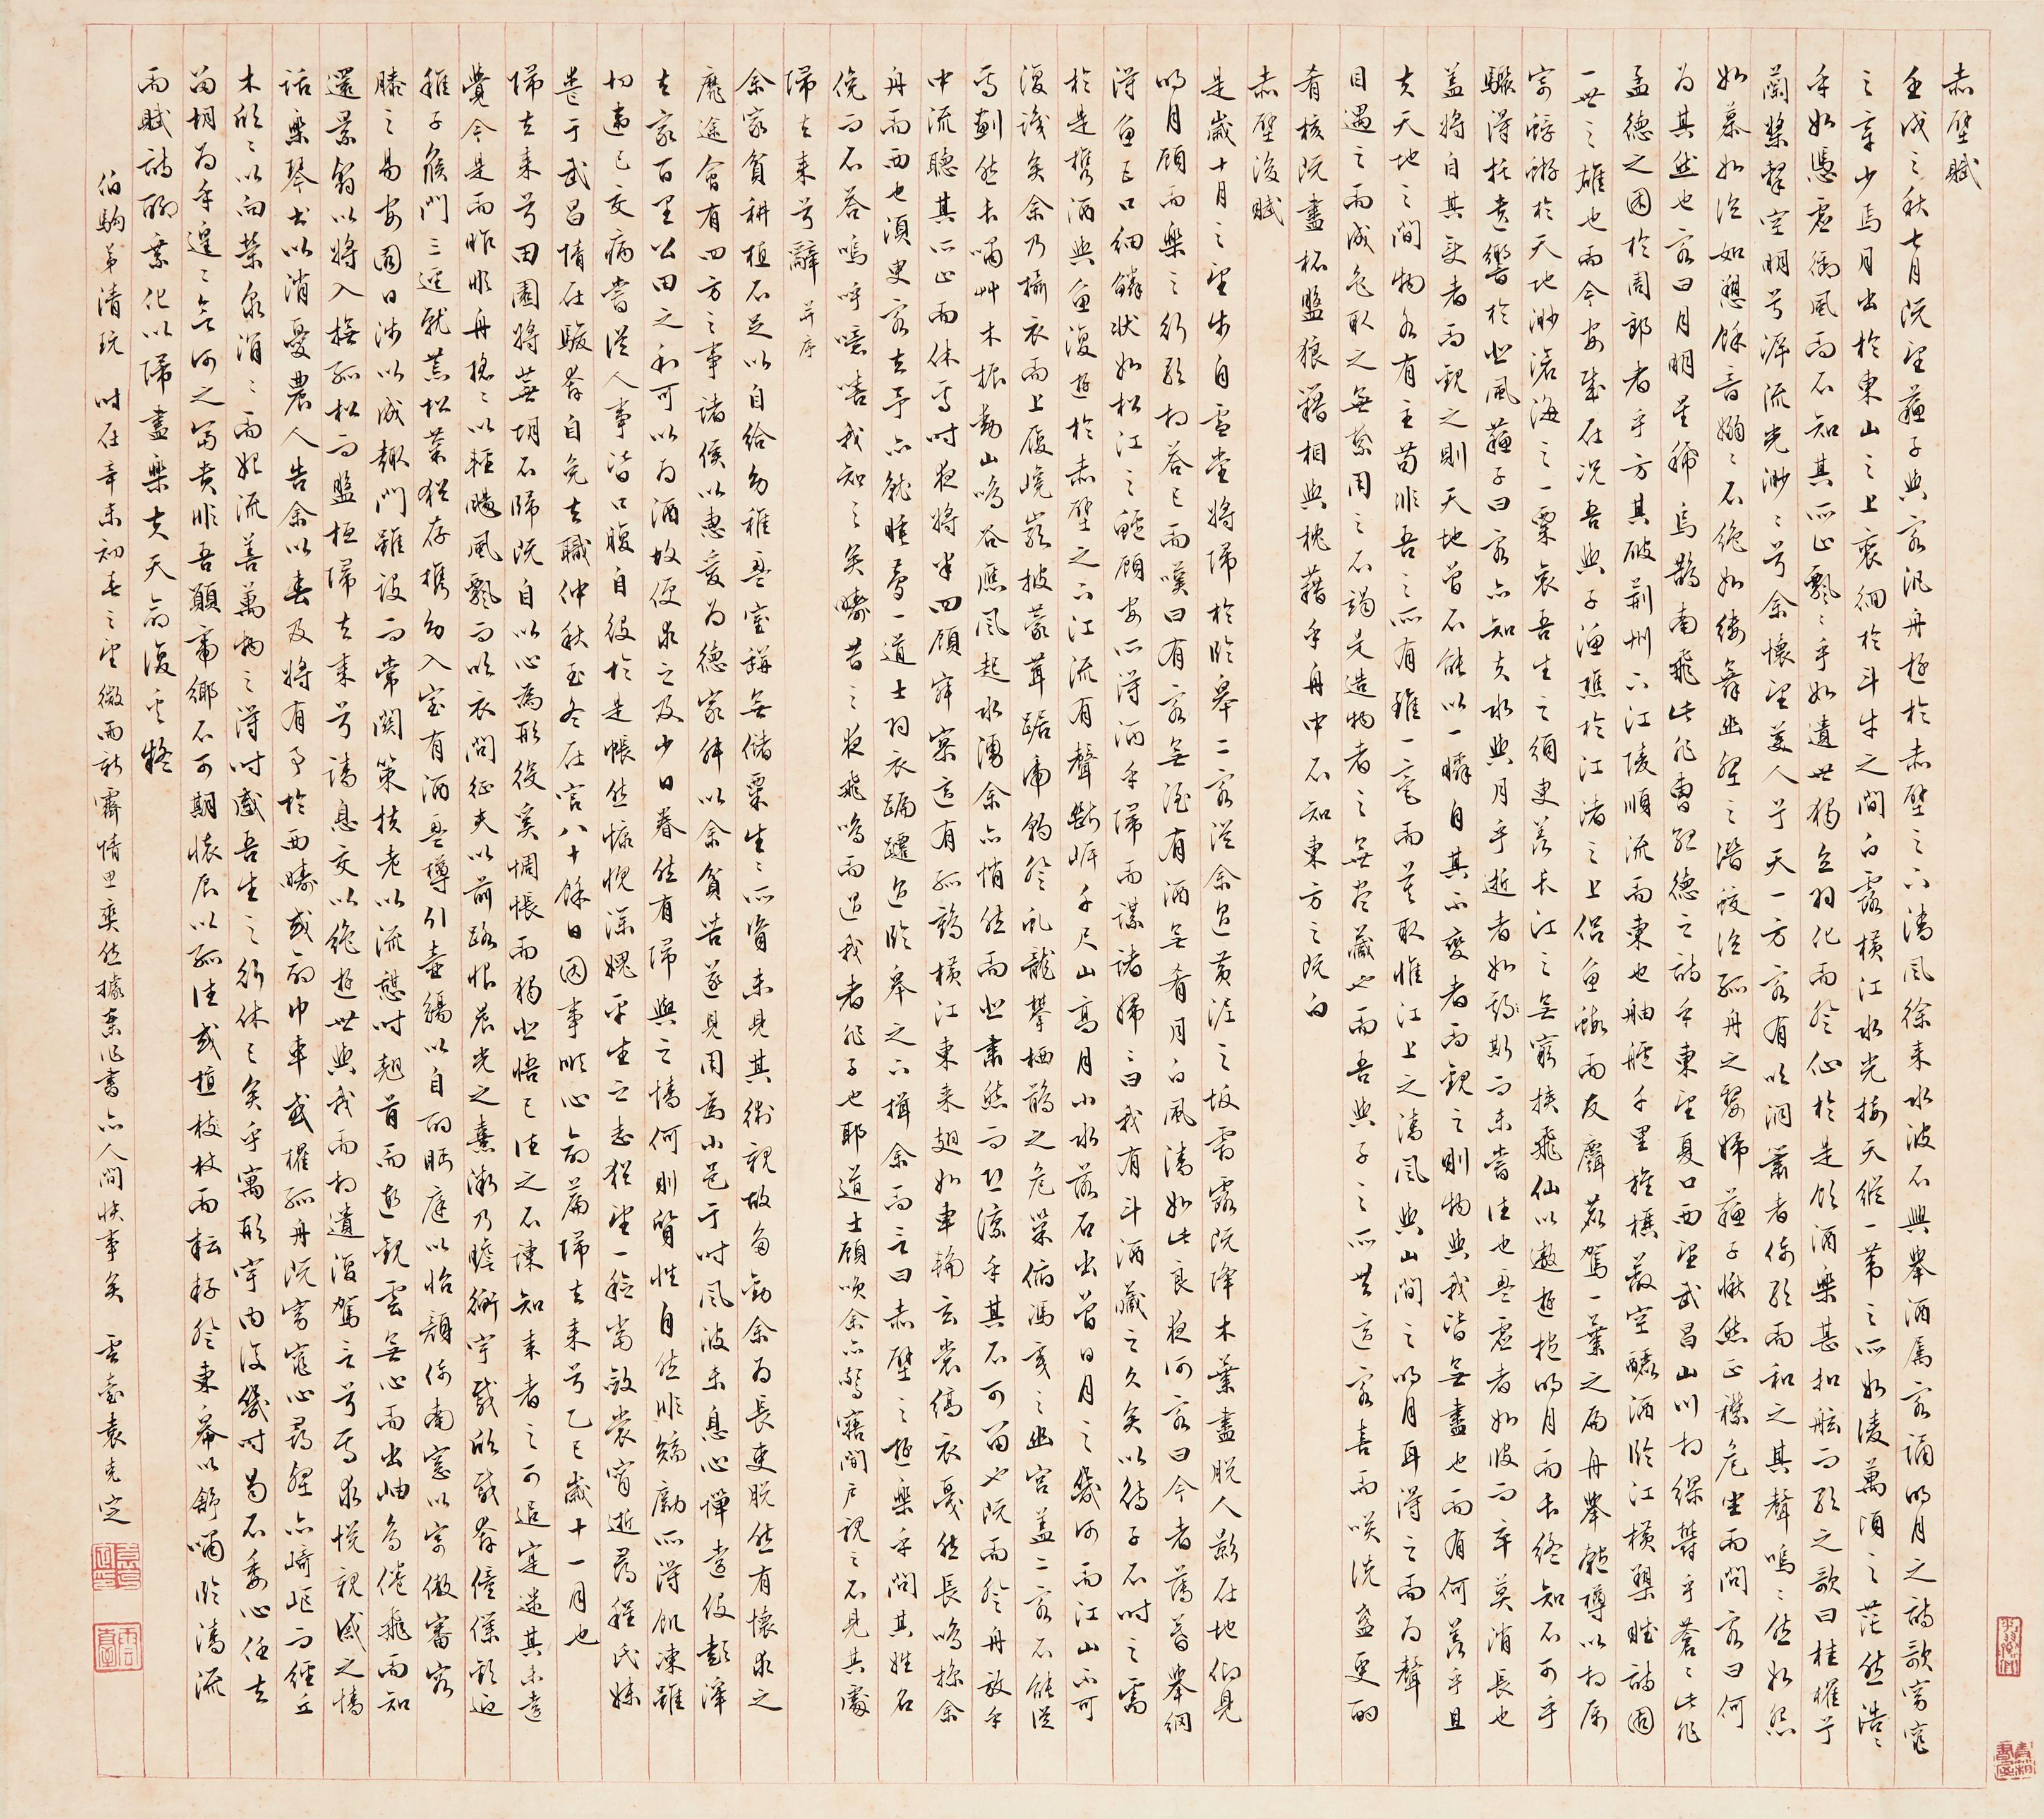 赤壁賦
壬戌之秋七月既望蘇子與客汎舟遊於赤壁之下清風徐來水波不興舉酒屬客誦明月之詩歌窈窕
之章少焉月出於東山之上裵徊於斗牛之間白露橫江水光接天縱一葦之所如凌萬頃之茫然浩〻
乎如憑虛御風而不知其所止飄〻乎如遺世獨立羽化而登仙於是飲酒樂甚扣舷而歌之歌曰桂櫂兮
蘭槳擊空明兮泝流光渺〻兮余懷望美人兮天一方客有吹洞簫者倚歌而和之其聲嗚〻然如怨
如慕如泣如愬餘音嫋〻不絕如縷舞幽壑之潛蛟泣孤舟之嫠婦蘇子愀然正襟危坐而問客曰何
為其然也客曰月明星稀烏鵲南飛此非曹孟德之詩乎東望夏口西望武昌山川相繆鬱乎蒼〻此非
孟德之困於周郎者乎方其破荊州下江陵順流而東也舳艫千里旌旗蔽空釃酒臨江橫槊賦詩固
一世之雄也而今安在哉況吾與子漁樵於江渚之上侶魚蝦而友麋鹿駕一葉之扁舟舉匏樽以相屬
寄蜉蝣於天地渺滄海之一粟哀吾生之須臾羨長江之無窮挾飛仙以遨遊抱明月而長終知不可乎
驟得託遺響於悲風蘇子曰客亦知夫水與月乎逝者如斯而未嘗往也盈虛者如彼而卒莫消長也
蓋將自其變者而觀之則天地曾不能以一瞬自其不變者而觀之則物與我皆無盡也而有何羨乎且
夫天地之間物各有主苟非吾之所有雖一毫而莫取惟江上之清風與山間之明月耳得之而為聲
目遇之而成色取之無禁用之不竭是造物者之無盡藏也而吾與子之所共適客喜而笑洗盞更酌
肴核既盡杯盤狼籍相與枕藉乎舟中不知東方之既白
赤壁後賦
是歲十月之望步自雪堂將歸於臨皋二客從余過黃泥之坂霜露既降木葉盡脫人影在地仰見
明月顧而樂之行歌相答已而嘆曰有客無酒有酒無肴月白風清如此良夜何客曰今者薄暮舉網
得魚巨口細鱗狀如松江之鱸顧安所得酒乎歸而謀諸婦〻曰我有斗酒藏之久矣以待子不時之需
於是攜酒與魚復遊於赤壁之下江流有聲斷岸千尺山高月小水落石出曾日月之幾何而江山不可
復識矣余乃攝衣而上履巉巖披蒙茸踞虎豹登虬龍攀栖鶻之危巢俯馮夷之幽宮蓋二客不能從
焉劃然長嘯草木振動山鳴谷應風起水湧余亦悄然而悲肅然而恐凜乎其不可留也既而登舟放乎
中流聽其所止而休焉時夜將半四顧寂寥適有孤鶴橫江東來翅如車輪玄裳縞衣戛然長鳴掠余
舟而西也須臾客去予亦就睡夢一道士羽衣蹁躚過臨皋之下揖余而言曰赤壁之遊樂乎問其姓名
俛而不答嗚呼噫嘻我知之矣疇昔之夜飛鳴而過我者非子也耶道士顧笑余亦驚寤開戶視之不見其處
歸去來兮辭 并序
余家貧耕植不足以自給幼稚盈室缾無儲粟生〻所資未見其術親故多勸余為長吏脫然有懷求之
靡途會有四方之事諸侯以惠愛為德家叔以余貧苦遂見用為小邑于時風波未息心憚遠役彭澤
去家百里公田之利可以為酒故便求之及少日眷然有歸與之情何則質性自然非矯勵所得飢凍雖
切違己交病嘗從人事皆口腹自役於是悵然慷慨深媿平生之志猶望一稔當斂裳宵逝尋程氏妹
喪于武昌情在駿奔自免去職仲秋至冬在官八十餘日因事順心命篇歸去來兮乙巳歲十一月也
歸去來兮田園將蕪胡不歸既自以心為形役奚惆悵而獨悲悟已往之不諫知來者之可追寔迷其未遠
覺今是而昨非舟搖〻以輕颺風飄〻而吹衣問征夫以前路恨晨光之熹微乃瞻衡宇載欣載奔僮僕歡迎
稚子候門三逕就荒松菊猶存攜幼入室有酒盈樽引壺觴以自酌眄庭以怡顏倚南窗以寄傲審容
膝之易安園日涉以成趣門雖設而常關策扶老以流憩時翹首而遐觀雲無心而出岫鳥倦飛而知
還景翳以將入撫孤松而盤桓歸去來兮請息交以絕遊世與我而相遺復駕言兮焉求悅親戚之情
話樂琴書以消憂農人告余以春及將有事於西疇或命巾車或櫂孤舟既窈窕以尋壑亦崎嶇而經丘
木欣〻以向榮泉涓〻而始流善萬物之得時感吾生之行休已矣乎寓形宇內復幾時曷不委心任去
留胡為乎遑〻兮何之富貴非吾願帝鄉不可期懷良辰以孤往或植杖而耘耔登東皋以舒嘯臨清流
而賦詩聊乘化以歸盡樂夫天命復奚疑
伯駒弟清玩 時在辛未初春之望微雨新霽情思爽然據案作書亦人間快事矣 雲臺袁克定